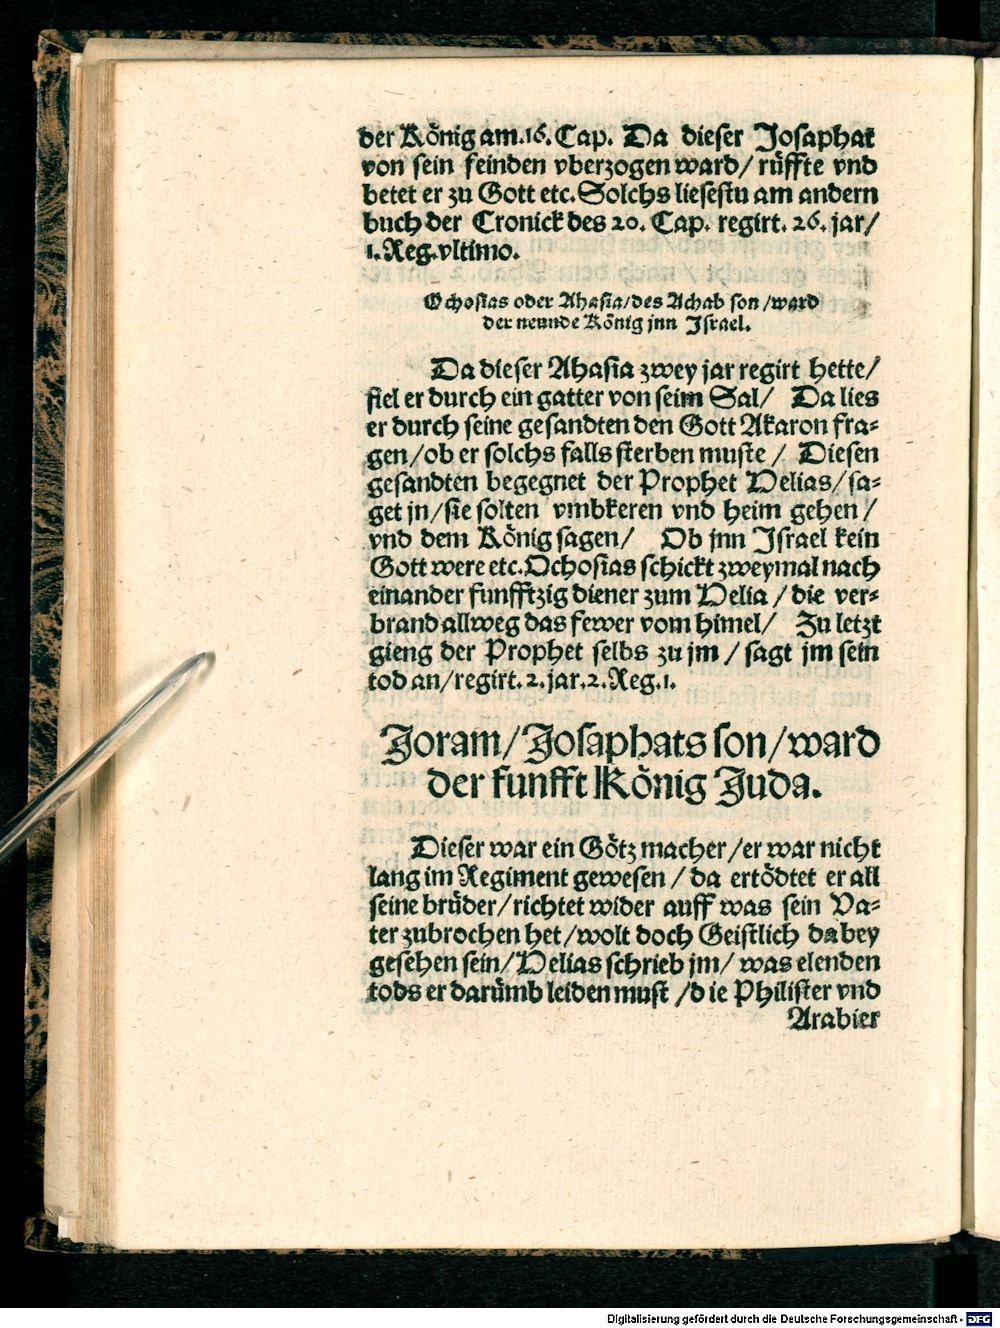 der König am.16.Cap. Da dieser Josaphat
von sein feinden vberzogen ward/ rüffte vnd
betet er zu Gott etc.Solchs liesestu am andern
buch der Cronick des 20. Cap. regirt. 26. jar/
1.Reg.vltimo.
Ochosias oder Ahasia/des Achab son/ward
der neunde König jnn Israel.
Da dieser Ahasia zwey jar regirt hette/
fiel er durch ein gatter von seim Sal/ Da lies
er durch seine gesandten den Gott Akaron fra⸗
gen/ob er solchs falls sterben muste/ Diesen
gesandten begegnet der Prophet Helias/sa⸗
get jn/sie solten vmbkeren vnd heim gehen/
vnd dem König sagen/ Ob jnn Israel kein
Gott were etc.Ochosias schickt zweymal nach
einander funfftzig diener zum Helia/die ver⸗
brand allweg das fewer vom himel/ Zu letzt
gieng der Prophet selbs zu jm/sagt jm sein
tod an/regirt.2.jar.2.Reg.1.
Joram/Josaphats son/ward
der funfft König Juda.
Dieser war ein Götz macher/er war nicht
lang im Regiment gewesen/da ertödtet er all
seine brüder/richtet wider auff was sein Va⸗
ter zubrochen het/wolt doch Geistlich dabey
gesehen sein/Helias schrieb jm/was elenden
tods er darümb leiden must/die Philister vnd
Arabier
Digitalisierung gefördert durch die Deutsche Forschungsgemeinschaft - DFG